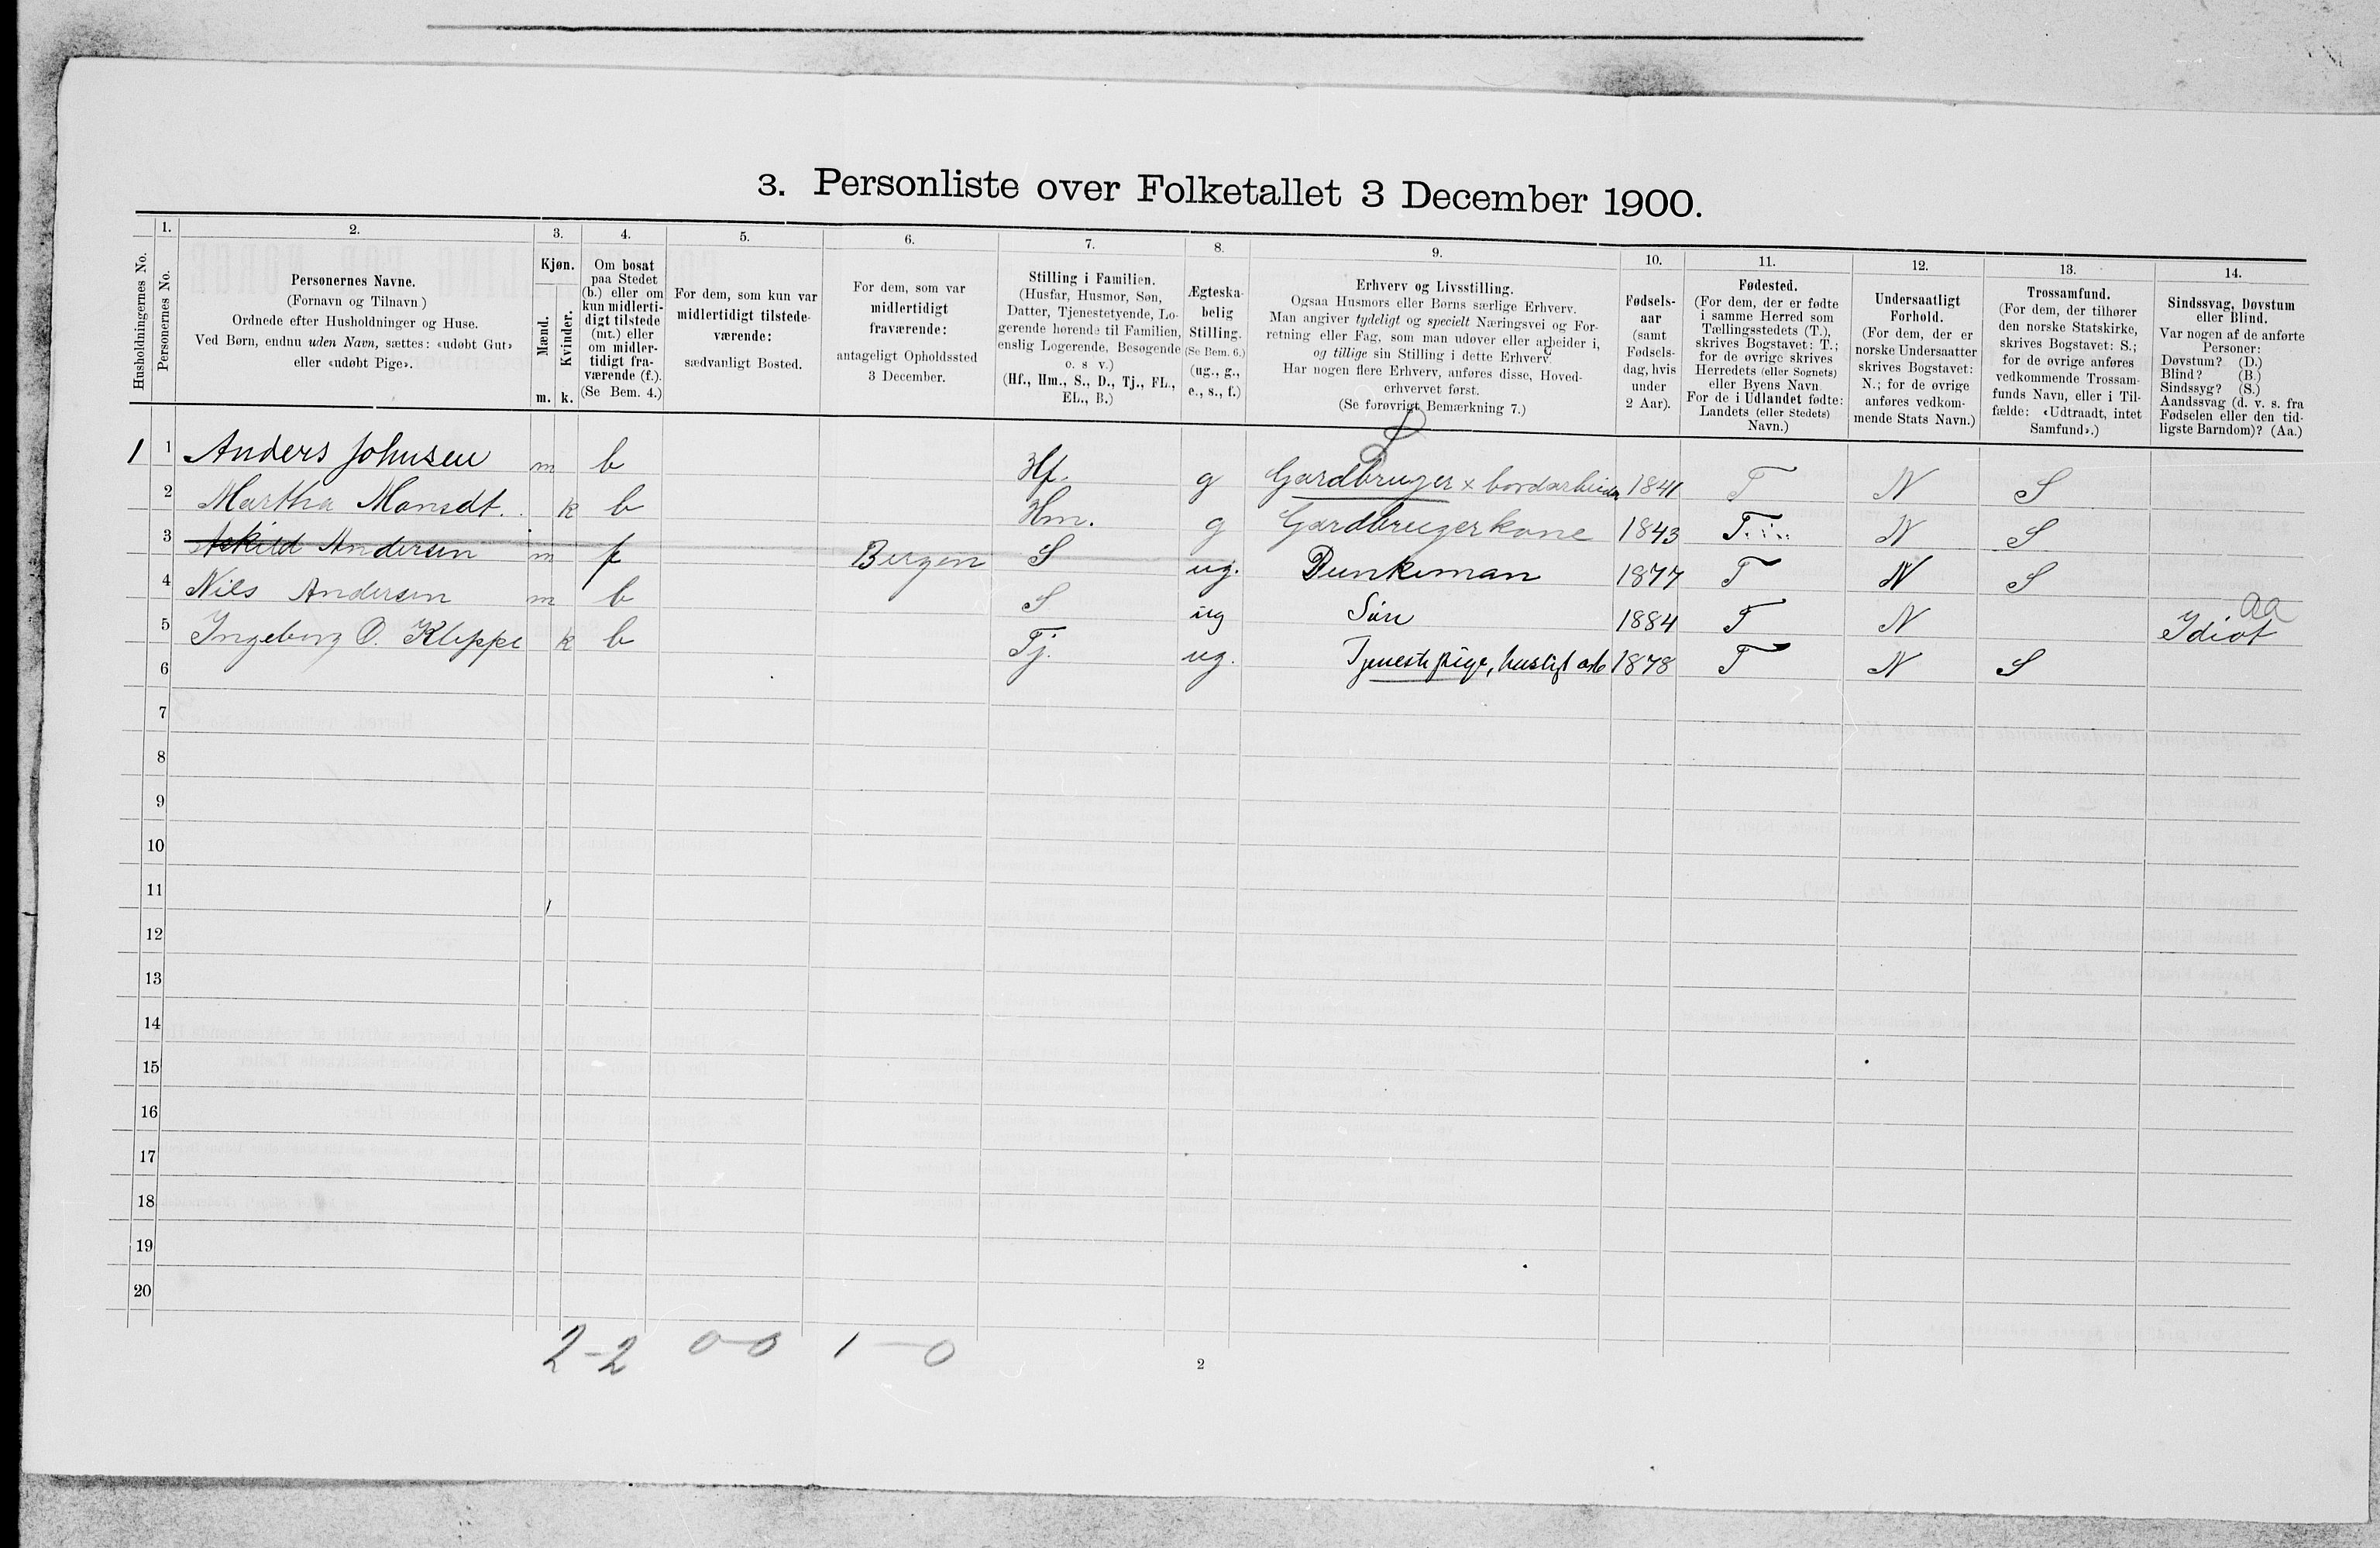 3. Personliste over Folketallet 3 December 1900.
1. 2. 3. 4. 5. 6. 7. 8. 9. 10. 11. 12. 13. 14.
Husholdningernes No.
Personernes No.
Personernes Navne.
(Fornavn og Tilnavn)
Ordnede efter Husholdninger og Huse.
Ved Børn, endnu uden Navn, sættes: «udøbt Gut»
eller «udøbt Pige».
Kjøn.
Mænd.
Kvinder.
m. k.
Om bosat
paa Stedet
(b.) eller om
kun midlerti-
digt tilstede
(mt.) eller
om midler-
tidigt fra-
værende (f.).
(Se Bem. 4.)
For dem, som kun var
midlertidigt tilstede-
værende:
sædvanligt Bosted.
For dem, som var
midlertidigt
fraværende:
antageligt Opholdssted
3 December.
Stilling i Familien.
(Husfar, Husmor, Søn,
Datter, Tjenestetyende, Lo-
gerende hørende til Familien,
enslig Logerende, Besøgende
o. s. v.)
(Hf., Hm., S., D., Tj., FL.,
EL., B.)
Ægteska-
belig
Stilling.
(Se Bem. 6.)
(ug., g.,
e., s., f.)
Erhverv og Livsstilling.
Ogsaa Husmors eller Børns særlige Erhverv.
Man angiver tydeligt og specielt Næringsvei og For-
retning eller Fag, som man udøver eller arbeider i,
og tillige sin Stilling i dette Erhverv.
Har nogen flere Erhverv, anføres disse, Hoved-
erhvervet først.
(Se forøvrigt Bemærkning 7.)
Fødsels-
aar
(samt
Fødsels-
dag, hvis
under
2 Aar).
Fødested.
(For dem, der er fødte
i samme Herred som
Tællingsstedets (T.),
skrives Bogstavet: T.;
for de øvrige skrives
Herredets (eller Sognets)
eller Byens Navn.
For de i Udlandet fødte:
Landets (eller Stedets)
Navn.)
Undersaatligt
Forhold.
(For dem, der er
norske Undersaatter
skrives Bogstavet:
N.; for de øvrige
anføres vedkom-
mende Stats Navn.)
Trossamfund.
(For dem, der tilhører
den norske Statskirke,
skrives Bogstavet: S.;
for de øvrige anføres
vedkommende Trossam-
funds Navn, eller i Til-
fælde: «Udtraadt, intet
Samfund».)
Sindssvag, Døvstum
eller Blind.
Var nogen af de anførte
Personer:
Døvstum? (D.)
Blind? (B.)
Sindssyg? (S.)
Aandssvag (d. v. s. fra
Fødselen eller den tid-
ligste Barndom)? (Aa.)
1 1 Anders Johnsen m b Hf. g Gardbruger x bordarbeider 1841 T N S
2 Martha Monsdt. k b Hm. g Gardbrugerkone 1843 T. N S
3 Askild Andersen m f Bergen S ug. Dunkeman 1877 T N S
4 Nils Andersen m b S ug Søn 1884 T N Idiot Aa
5 Ingeborg O. Kleppe k b Tj. ug. Tjenestepige, husligt arb 1878 T N S
6
7
8
9
10
11
12
13
14
15
16
17
18
19
20
2-2 0-0 1-0
2